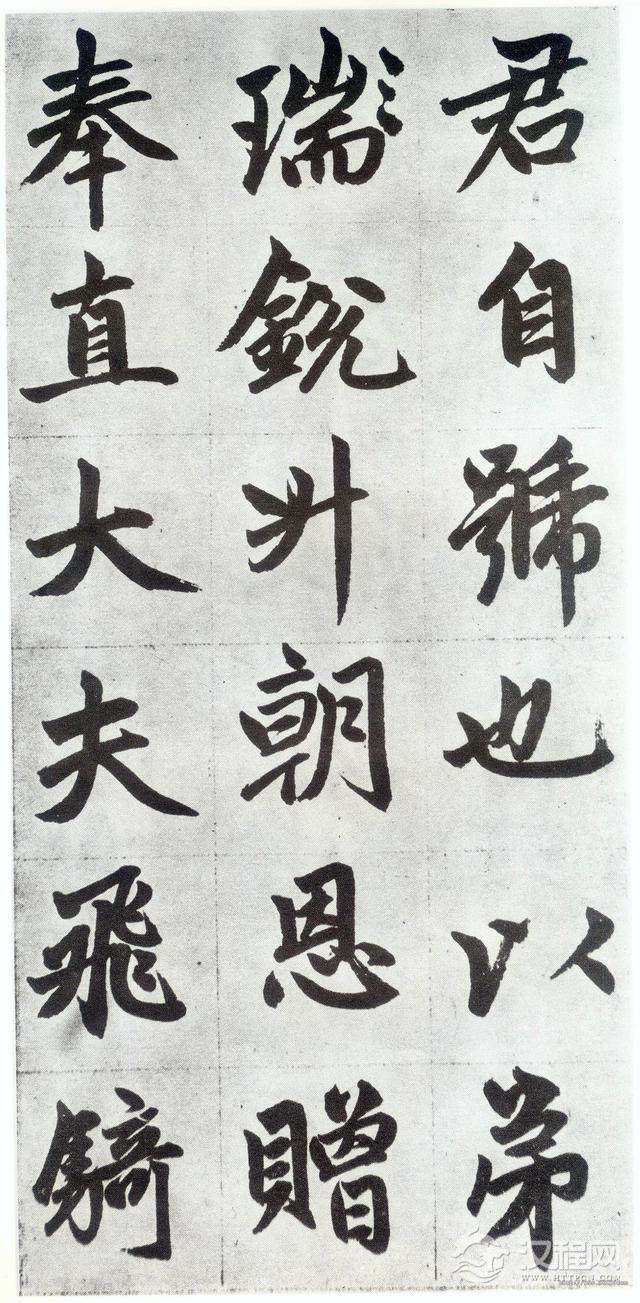 君自號也以弟
瑞銳升朝恩贈
奉直大夫飛騎
汉程网
WWW.HTTPCN.COM